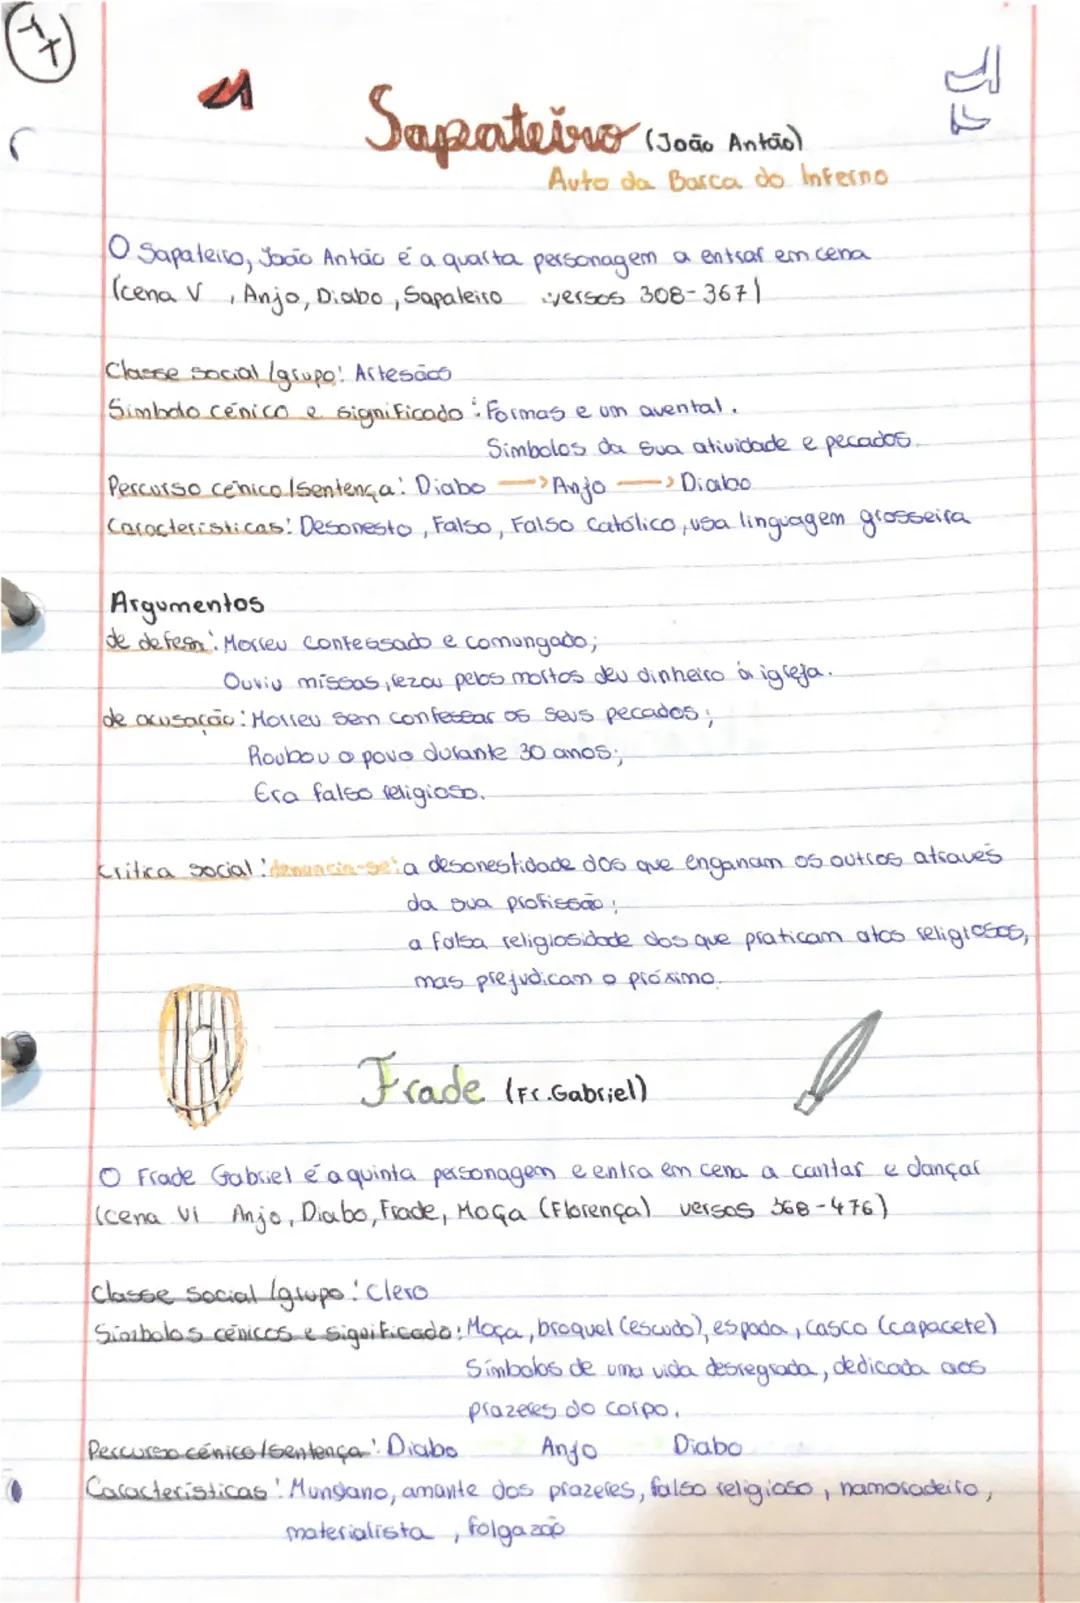 Sapateiro (João Antão)
Auto da Barca do Inferno
O Sapateiro, João Antão é a quarta personagem a entrar em cena
(cena V , Anjo, Diabo, Sapateiro versos 308-367)
Classe social/grupo: Artesãos
Simbolo cénico e significado: Formas e um avental.
Simbolos da sua atividade e pecados.
Percurso cénico/sentença: Diabo → Anjo → Diabo
Características: Desonesto, Falso, Falso Católico, usa linguagem grosseira
Argumentos
de defesa: Morreu confessado e comungado;
Ouviu missas, rezou pelos mortos deu dinheiro à igreja.
de acusação: Morreu sem confessar os seus pecados;
Roubou o povo durante 30 anos;
Era falso religioso.
Critica social: denuncia-se: a desonestidade dos que enganam os outros através
da sua profissão;
a falsa religiosidade dos que praticam atos religiosos,
mas prejudicam o próximo.
Frade (Fr.Gabriel)
O Frade Gabriel é a quinta personagem e entra em cena a cantar e dançar
(cena VI Anjo, Diabo, Frade, Moça (Florença) versos 368-476)
Classe social/grupo: Clero
Simbolos cénicos e significado: Moça, broquel (escudo), espada, casco (capacete)
Símbolos de uma vida desregrada, dedicada aos
prazeres do corpo.
Percurso cénico/sentença: Diabo Anjo Diabo
Características: Mundano, amante dos prazeres, falso religioso, namoradeiro,
materialista, folgazão